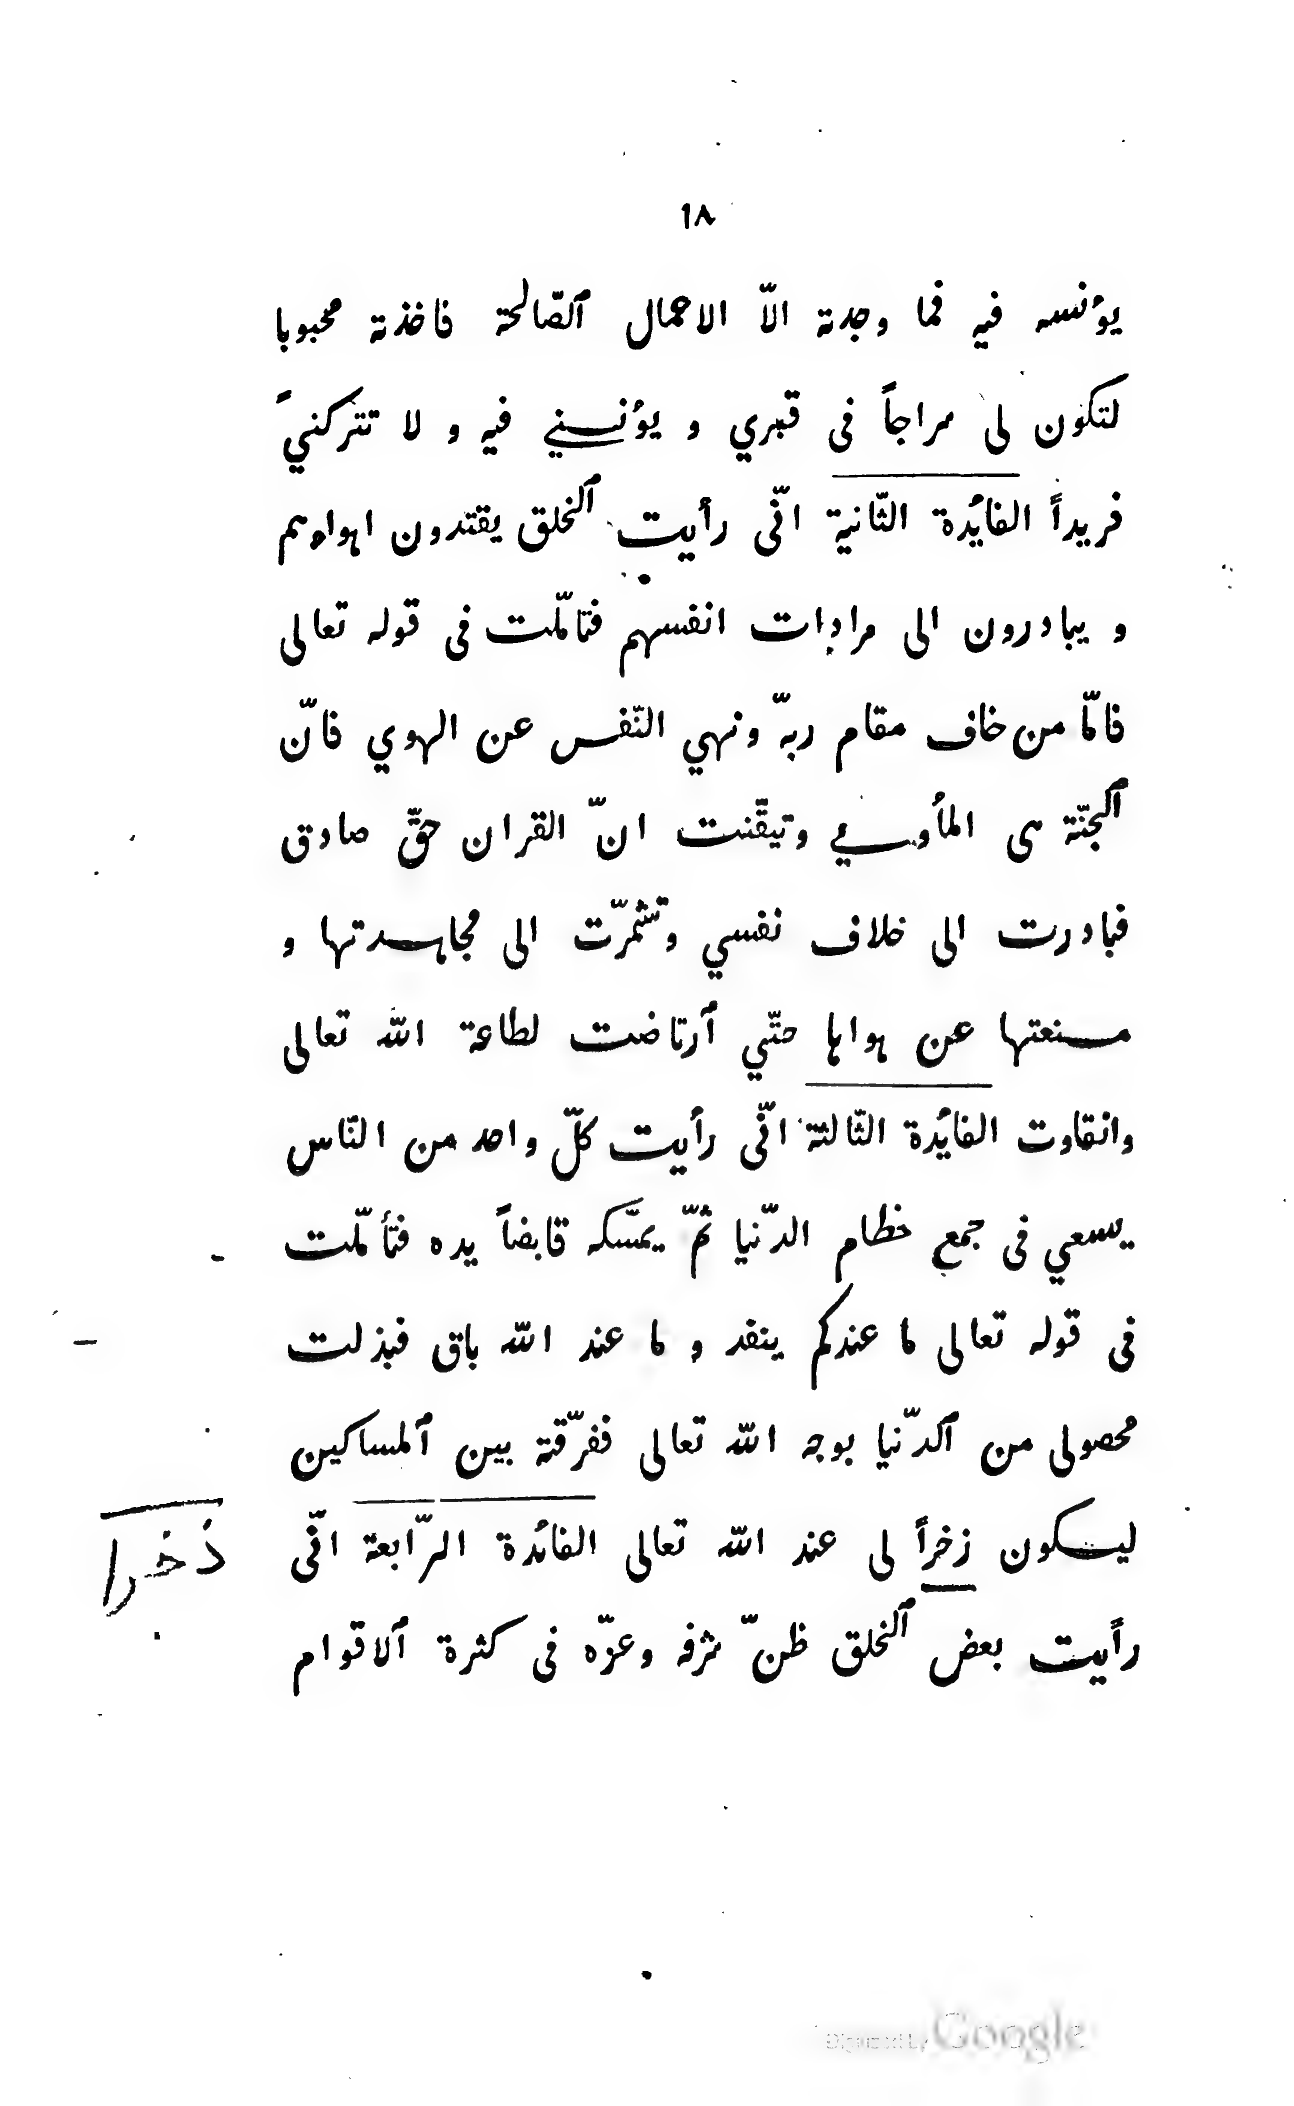 ١٨
يوٴنسه فيه فما وجدتة الّا الاعمال ٱلصّالحة فاخذتة محبوبا
لتكون لى سراجاً فى قبري و يوٴنسني فيه و لا تتركنيً
فريداً الفائدة الثّانية انّى رأيت ٱلخلق يقتدون اهواءهم
و يبادرون الى مرادات انفسهم فتامّلت فى قوله تعالى
فامّا من خاف مقام ربّه ونهي النّفس عن الهوي فانّ
ٱلجنّة هى المأوي وتيقّنت انّ القران حقّ صادق
فبادرت الى خلاف نفسي وتشمّرت الى مجاهدتها و
منعتها عن هواها حتّي ٱرتاضت لطاعة الله تعالى
وانقاوت الفائدة الثّالثة انّى رأيت كلّ واحد من النّاس
يسعي فى جمع خظام الدّنيا ثمّ يمسّكه قابضاً يده فتأمّلت
فى قوله تعالى ما عندكم ينفد و ما عند الله باق فبذلت
محصولى من ٱلدّنيا بوجه الله تعالى ففرّقتة بين ٱلمساكين
ليكون زخراً لى عند الله تعالى الفائدة الرّابعة انّى
ذخرا
رأيت بعض ٱلخلق ظنّ شرفه وعزّه فى كثرة ٱلاقوام
Digitized by Google